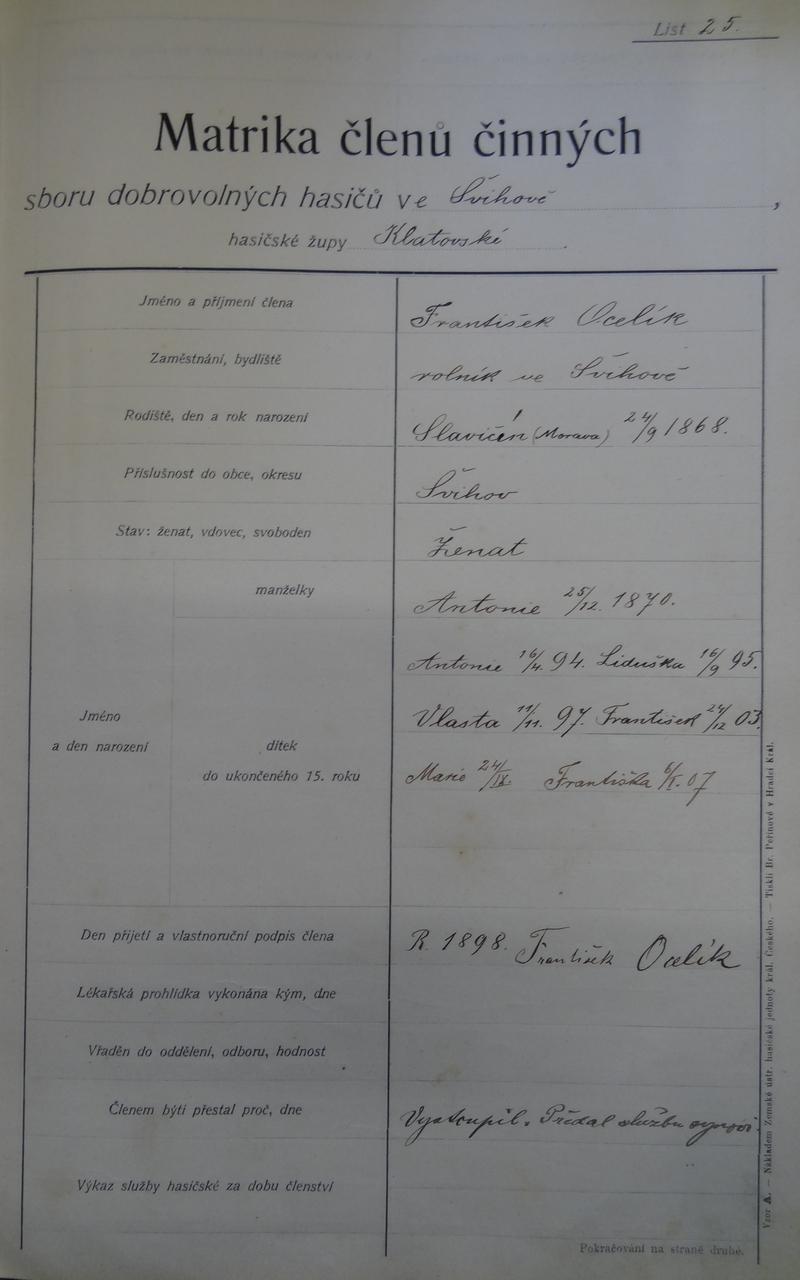 List 25.
Matrika členů činných
sboru dobrovolných hasičů ve Švihově,
hasičské župy Klatovské.
Jméno a příjmení člena František Ocelík
Zaměstnání, bydliště rolník ve Švihově
Rodiště, den a rok narození Slavičín (Morava) 24/9 1868.
Příslušnost do obce, okresu Švihov
Stav: ženat, vdovec, svoboden Ženat
manželky Antonie 25/12. 1870.
Antonie 16/4. 94. Liduška 16/9 95.
Jméno Vlasta 11/11. 97. František 24/12 03.
a den narození dítek
do ukončeného 15. roku Marie 24/IX. Františka 6/X. 07
Den přijetí a vlastnoruční podpis člena R. 1898. František Ocelík
Lékařská prohlídka vykonána kým, dne
Vřaděn do oddělení, odboru, hodnost
Členem býti přestal proč, dne Vystoupil. Předal službu synovi.
Výkaz služby hasičské za dobu členství
Pokračování na straně druhé.
Vzor A. — Nákladem Zemské ústř. hasičské jednoty král. Českého. — Tiskli Br. Peřinové v Hradci Král.